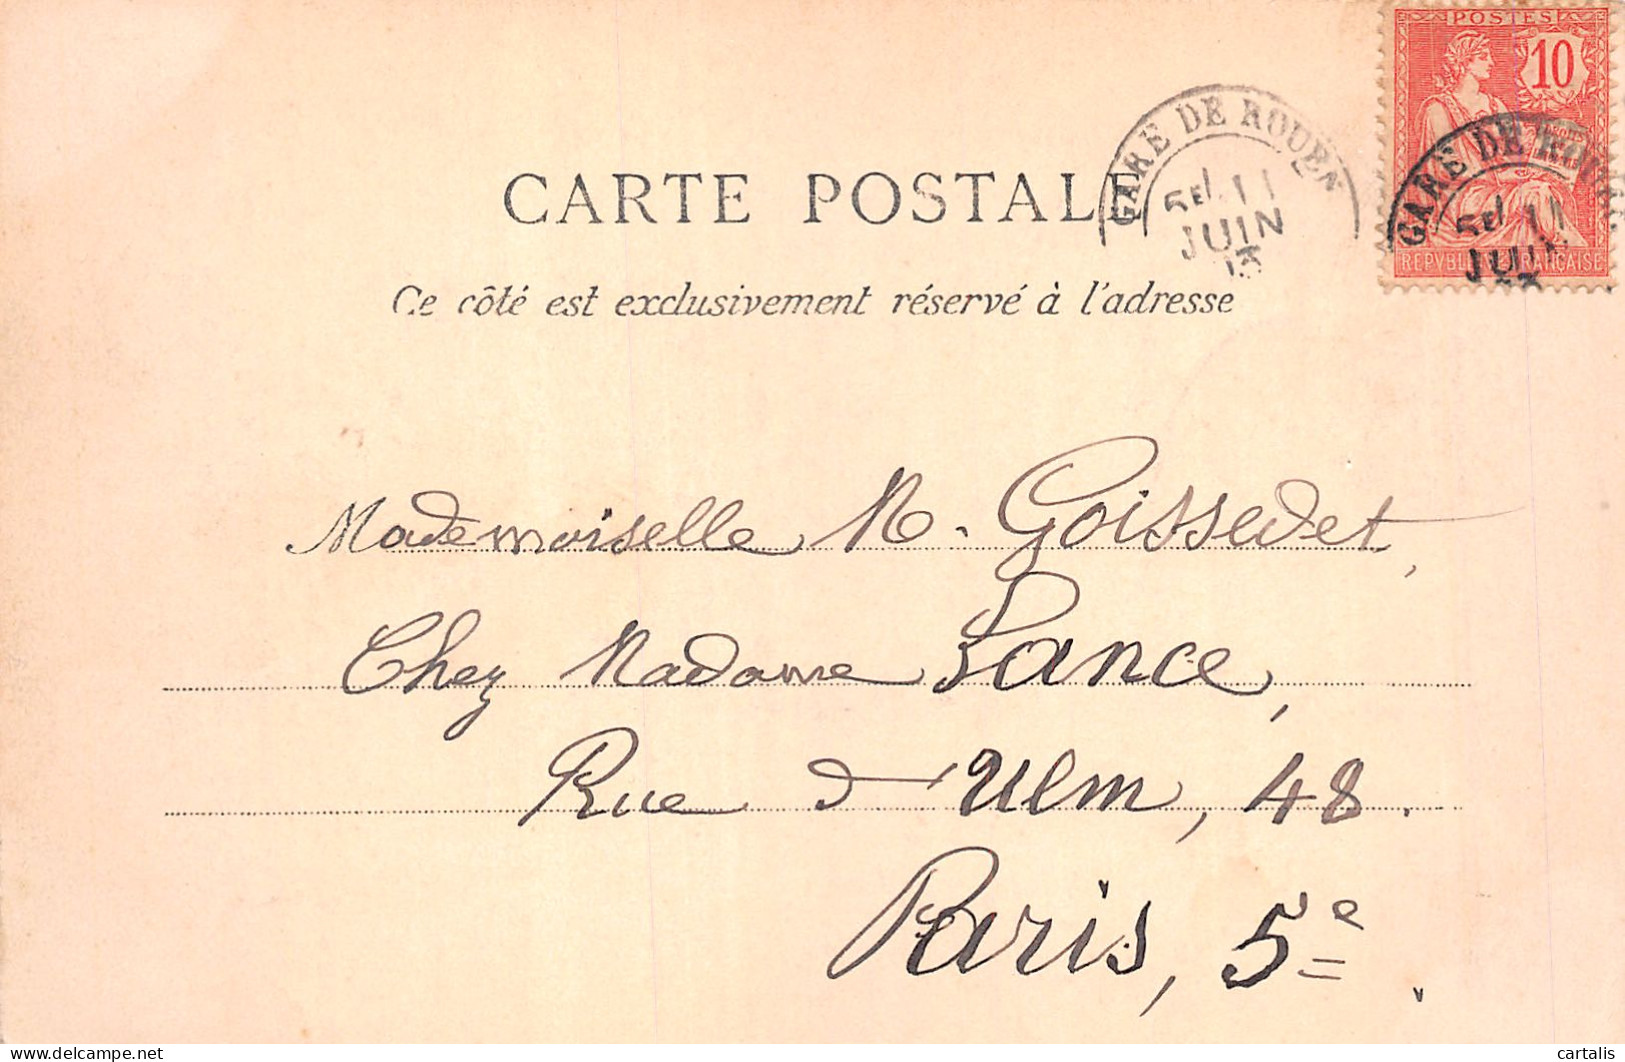 POSTES
10
REPVBLIQUE FRANÇAISE
GARE DE ROUEN
5E 11
JUIN
GARE DE ROUEN
5E 11
JUIN
CARTE POSTALE
Ce côté est exclusivement réservé à l'adresse
Mademoiselle M. Goissedet,
Chez Madame Lance,
Rue d'Ulm, 48.
Paris, 5e.
delcampe.net
cartalis